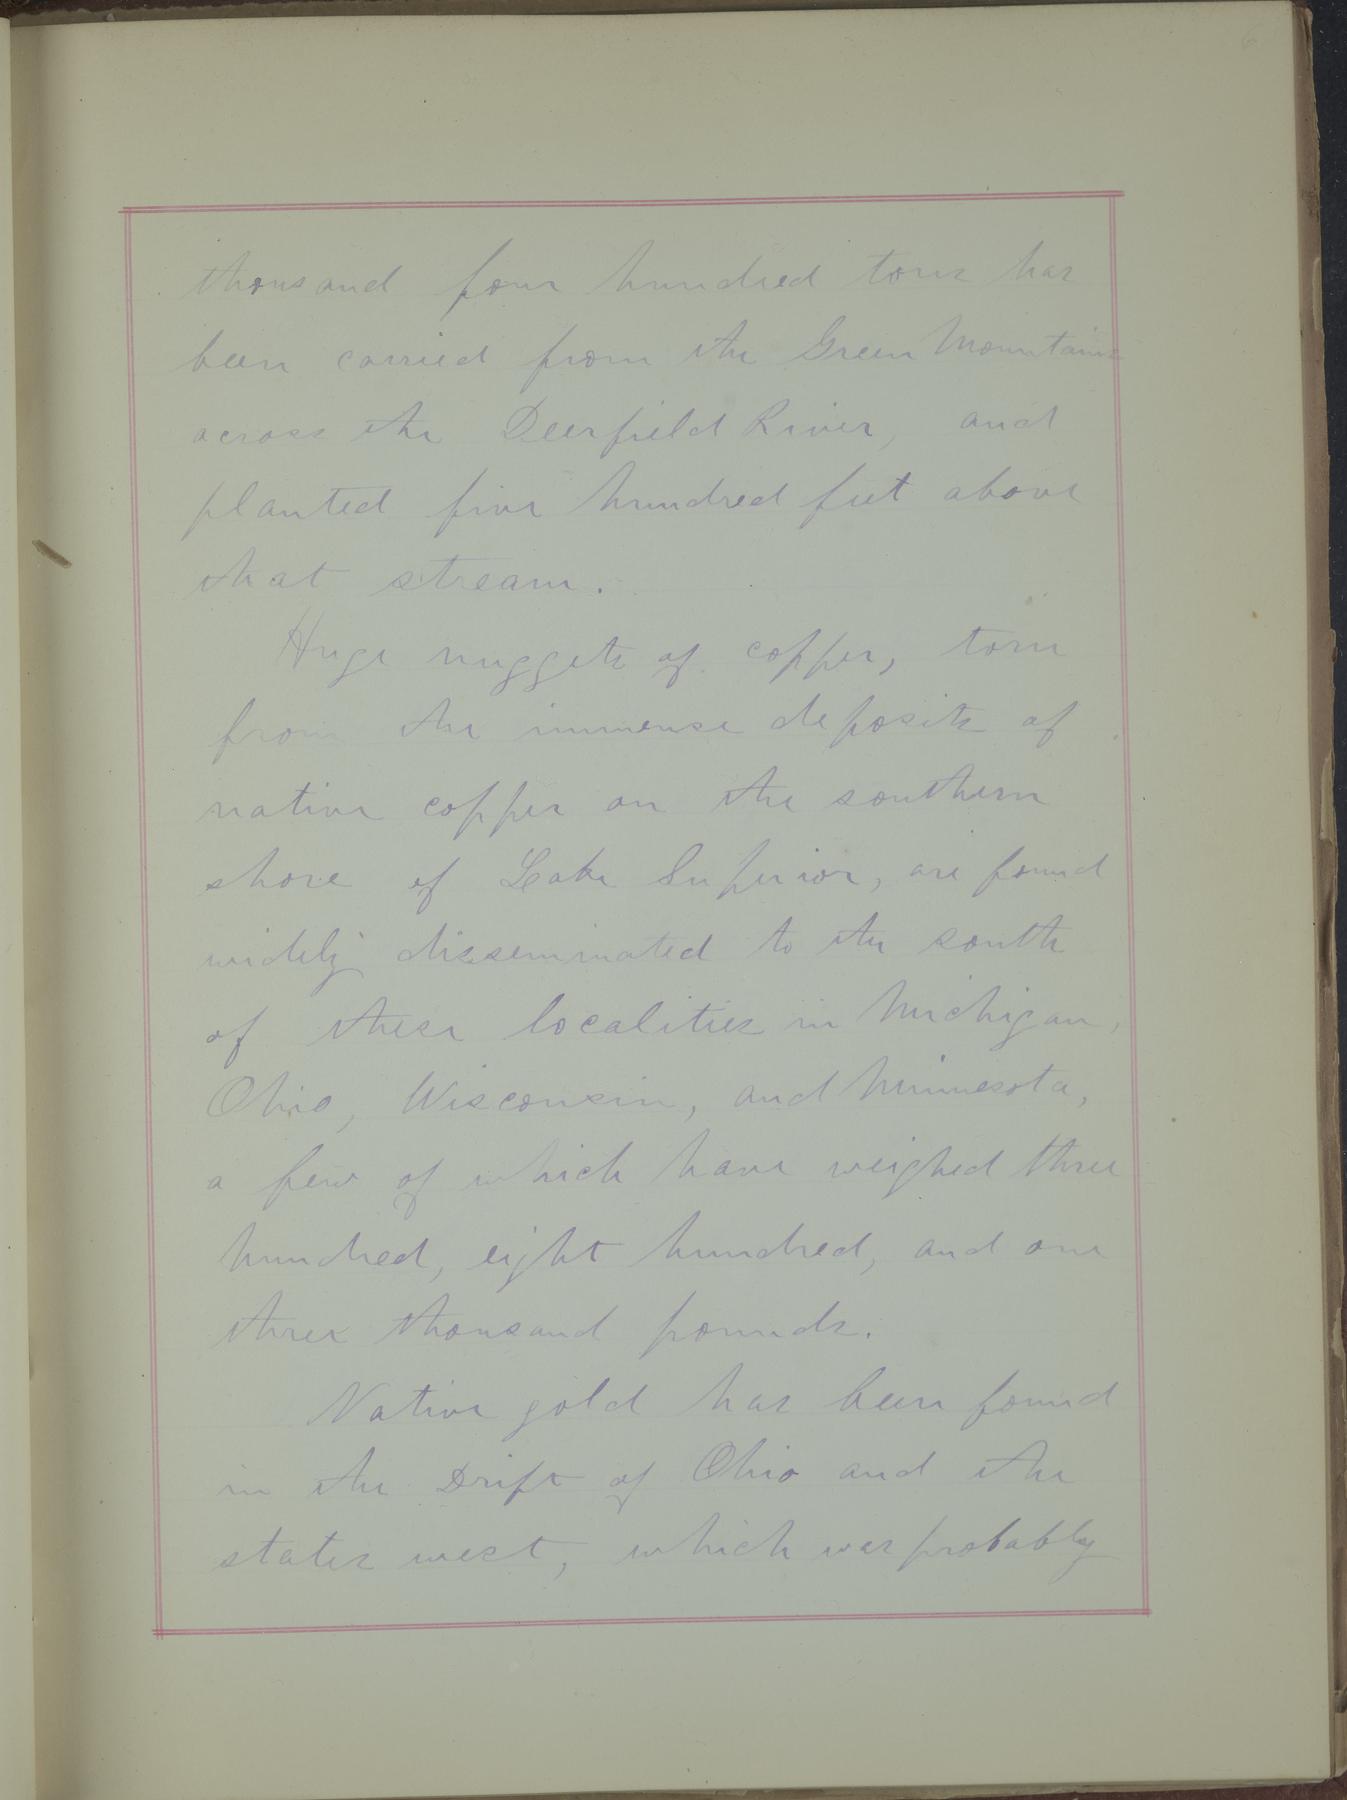 6
thousand four hundred tons has
been carried from the Green Mountains
across the Deerfield River, and
planted five hundred feet above
that stream.
Huge nuggets of copper, torn
from the immense deposits of
native copper on the southern
shore of Lake Superior, are found
widely disseminated to the south
of these localities in Michigan,
Ohio, Wisconsin, and Minnesota,
a few of which have weighed three
hundred, eight hundred, and one
three thousand pounds.
Native gold has been found
in the Drift of Ohio and the
states west, which was probably